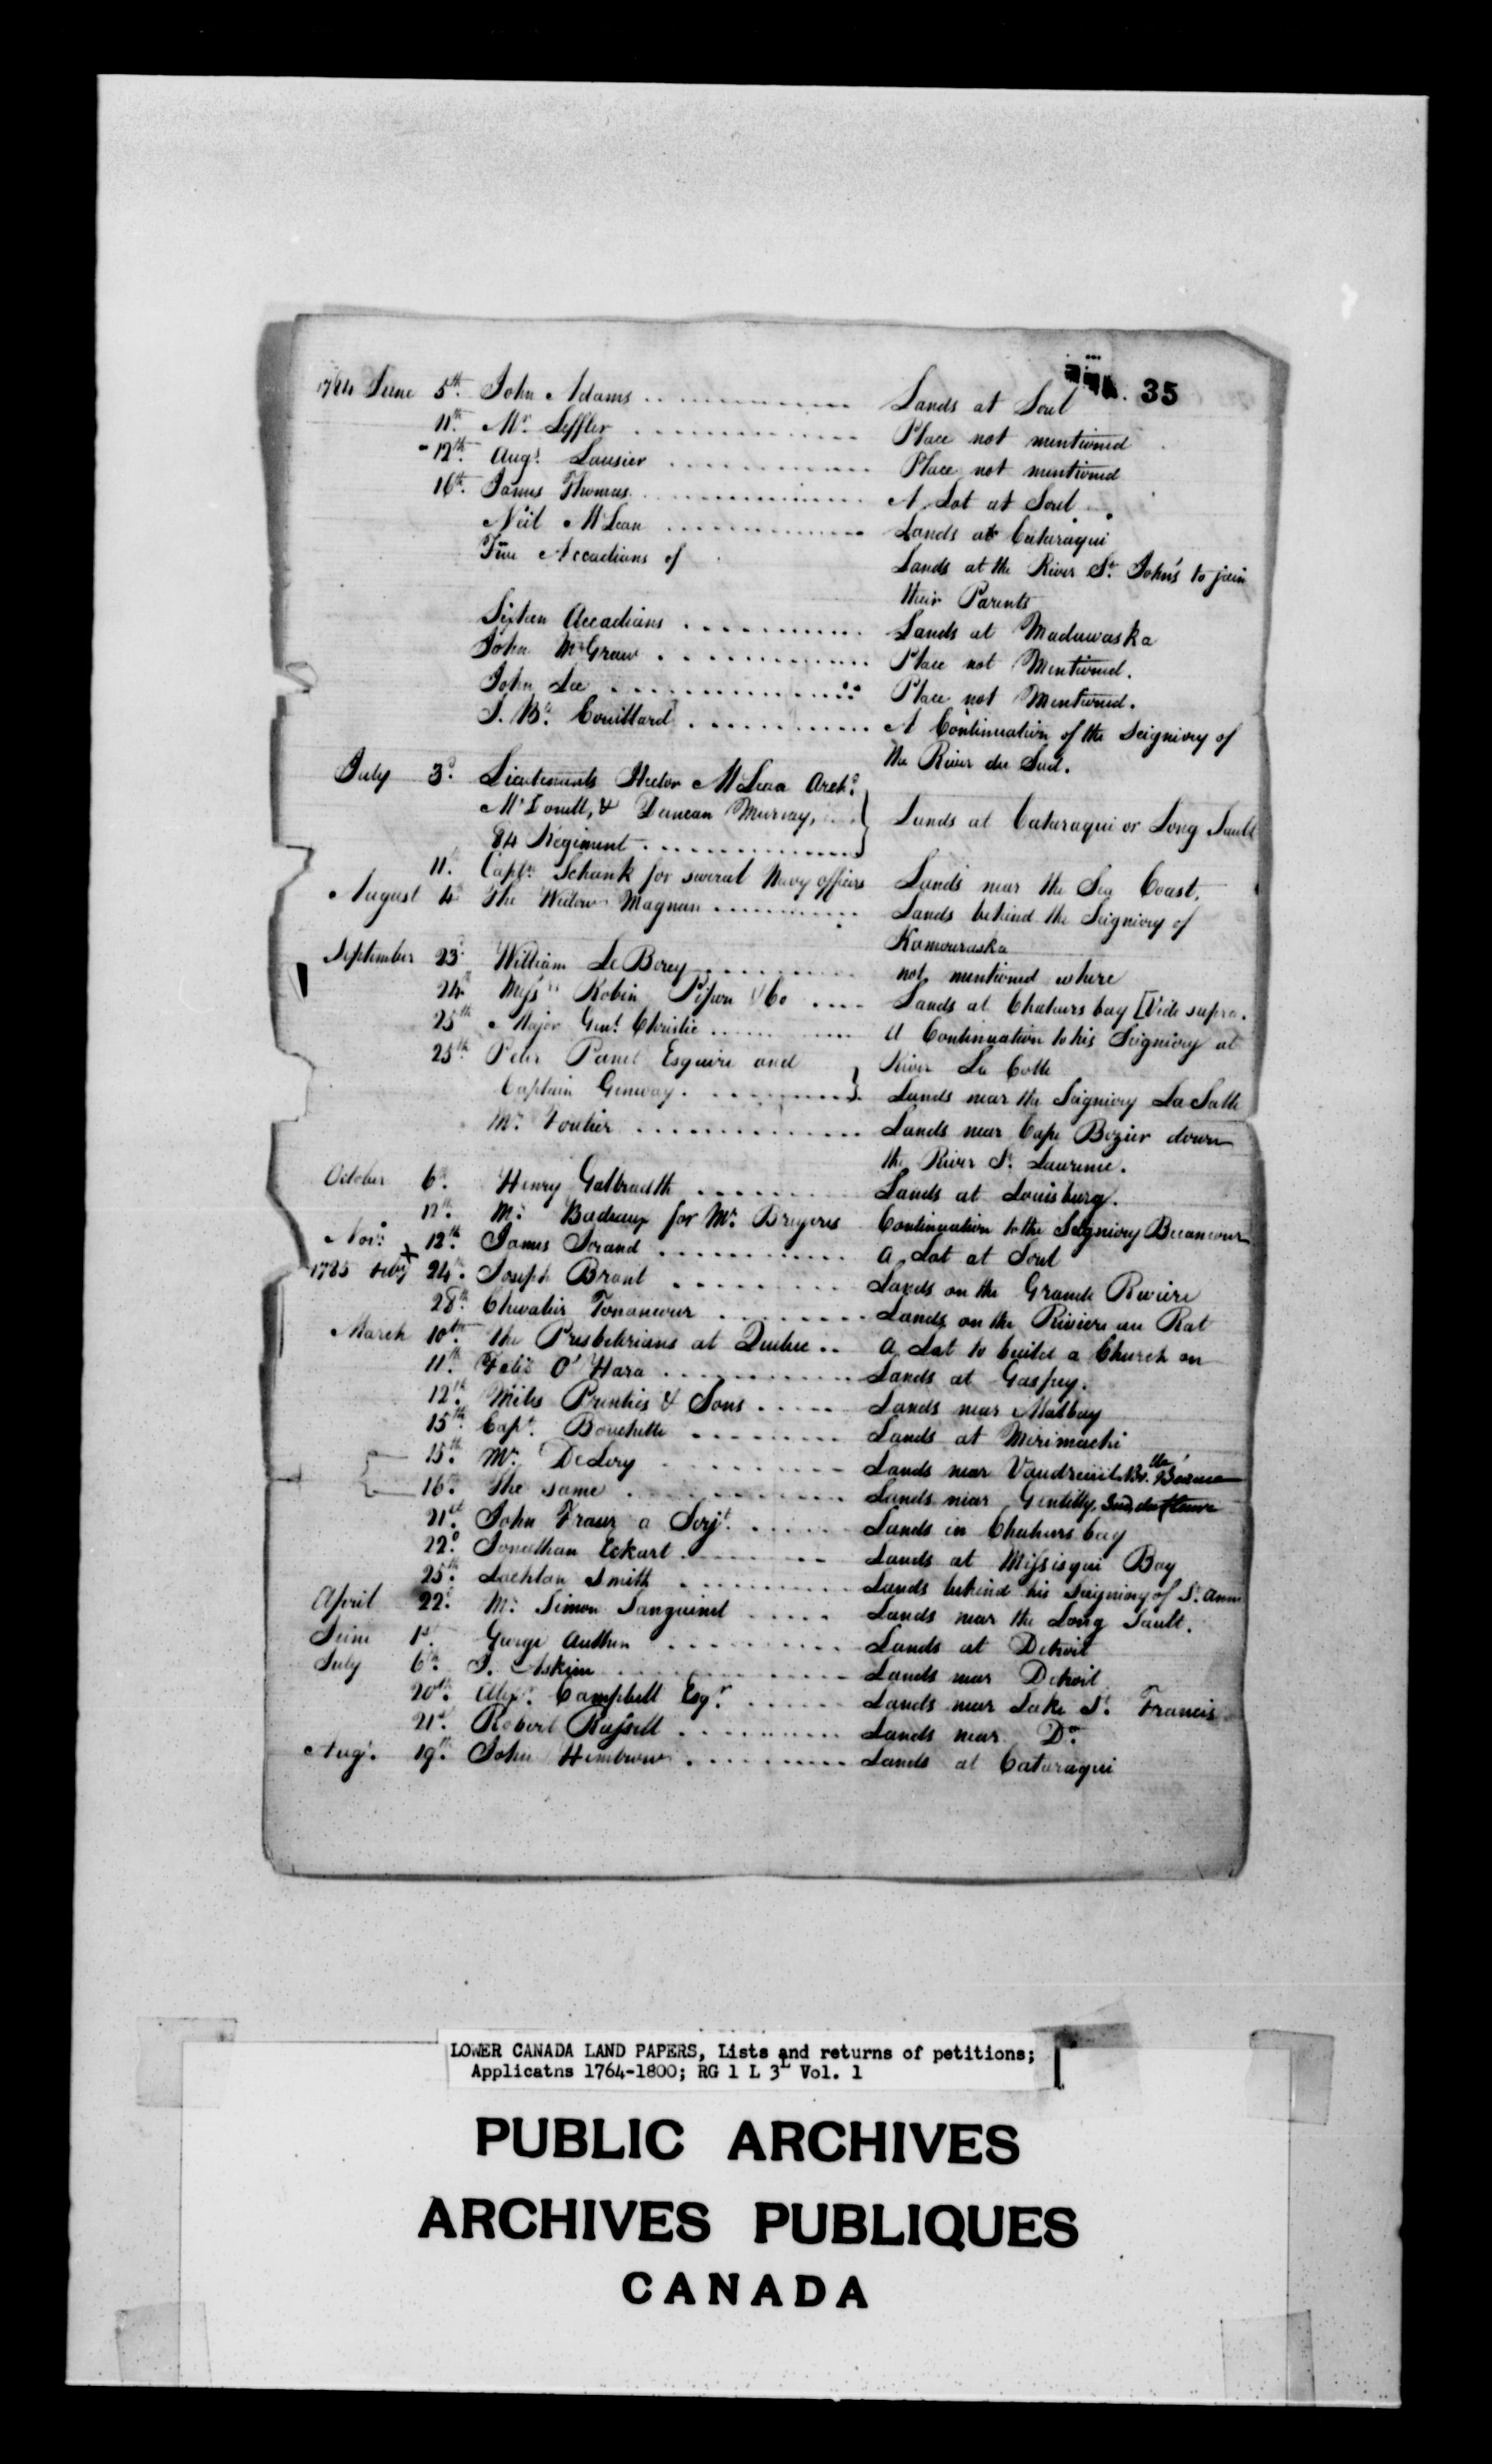 35
1784 June 5th. John Adams ............. Lands at Sorel
11th. Mr. Leffler ............. Place not mentioned
12th. Augt. Lausier ............ Place not mentioned
16th. James Thomas ............. A Lot at Sorel
Neil McLean ............. Lands at Cataraqui
Five Accadians of Lands at the River St. John's to join
their Parents
Sixteen Accadians ........... Lands at Madawaska
John McGraw ............. Place not Mentioned.
John Lee ............... Place not Mentioned.
J. Bte. Couillard ............ A Continuation of the Seigniory of
the River du Sud.
July 3d. Lieutenants Hector McLean Archd.
McDonell, & Duncan Murray, Lands at Cataraqui or Long Sault
84 Regiment ..............
11. Captn. Schank for several Navy officers Lands near the Sea Coast.
August 4th The Widow Magnan ........... Lands behind the Seigniory of
Kamouraska
September 23d William Le Borey .......... not mentioned where
24th Messrs Robin Pipon & Co .... Lands at Chaleurs bay [Vide supra.
25th Major Genl. Christie ........... A Continuation to his Seigniory at
River La Colle
25th. Peter Panet Esquire and
Captain Genway ........... Lands near the Seigniory La Salle
Mr. Fortier ............. Lands near Cape Rozier down
the River St. Laurence.
October 6th. Henry Galbraedth ........ Lands at Louisburg.
12th. Mr. Badeaux for Mr. Bruyeres Continuation to the Seigniory Becancour
Novr. 12th. James Strand ............ A Lot at Sorel
1785 Feby 24th. Joseph Brant ......... Lands on the Grande Riviere
28th. Chevalier Tonancour ........ Lands on the Riviere au Rat
March 10th. The Presbeterians at Quebec .. A Lot to build a Church on
11th. Felix O'Hara ............. Lands at Gaspey.
12th. Miles Prenties & Sons ..... Lands near Malbay
15th. Capt. Bouchette ......... Lands at Merimachi
15th. Mr. DeLery .......... Lands near Vaudreuil
16th. The same ............ Lands near Gentilly, Sud du fleuve
21st. John Fraser a Serjt. ..... Lands in Chaleurs bay
22d. Jonathan Eckart ......... Lands at Missisqui Bay
25th. Lachlan Smith .......... Lands behind his Seigniory of St. Anne
April 22d. Mr. Simon Sanguinet ..... Lands near the Long Sault.
June 1st. George Anthon .......... Lands at Detroit
July 6th. J. Askin ............. Lands near Detroit
20th. Alexr. Campbell Esqr. ...... Lands near Lake St. Francis
21st. Robert Russell .......... Lands near Do.
Augt. 19th. John Hembrow .......... Lands at Cataraqui
LOWER CANADA LAND PAPERS, Lists and returns of petitions;
Applicatns 1764-1800; RG 1 L 3L Vol. 1
PUBLIC ARCHIVES
ARCHIVES PUBLIQUES
CANADA